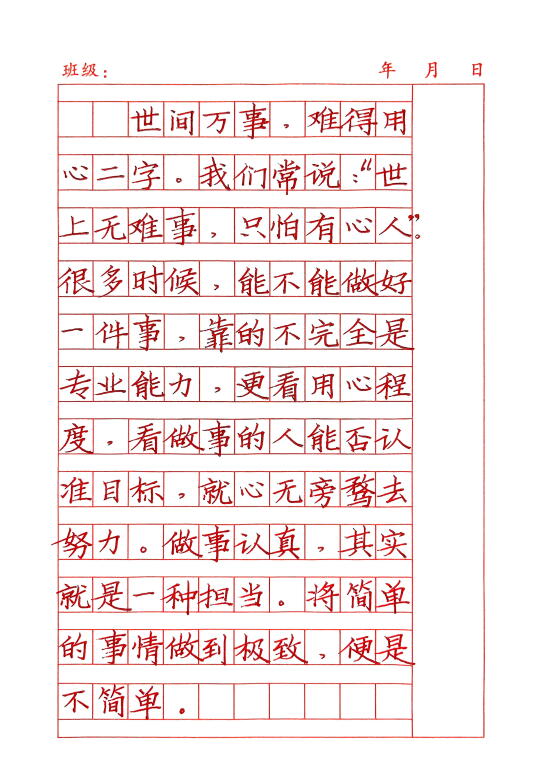 班级： 年 月 日
世间万事，难得用
心二字。我们常说：“世
上无难事，只怕有心人”。
很多时候，能不能做好
一件事，靠的不完全是
专业能力，更看用心程
度，看做事的人能否认
准目标，就心无旁骛去
努力。做事认真，其实
就是一种担当。将简单
的事情做到极致，便是
不简单。